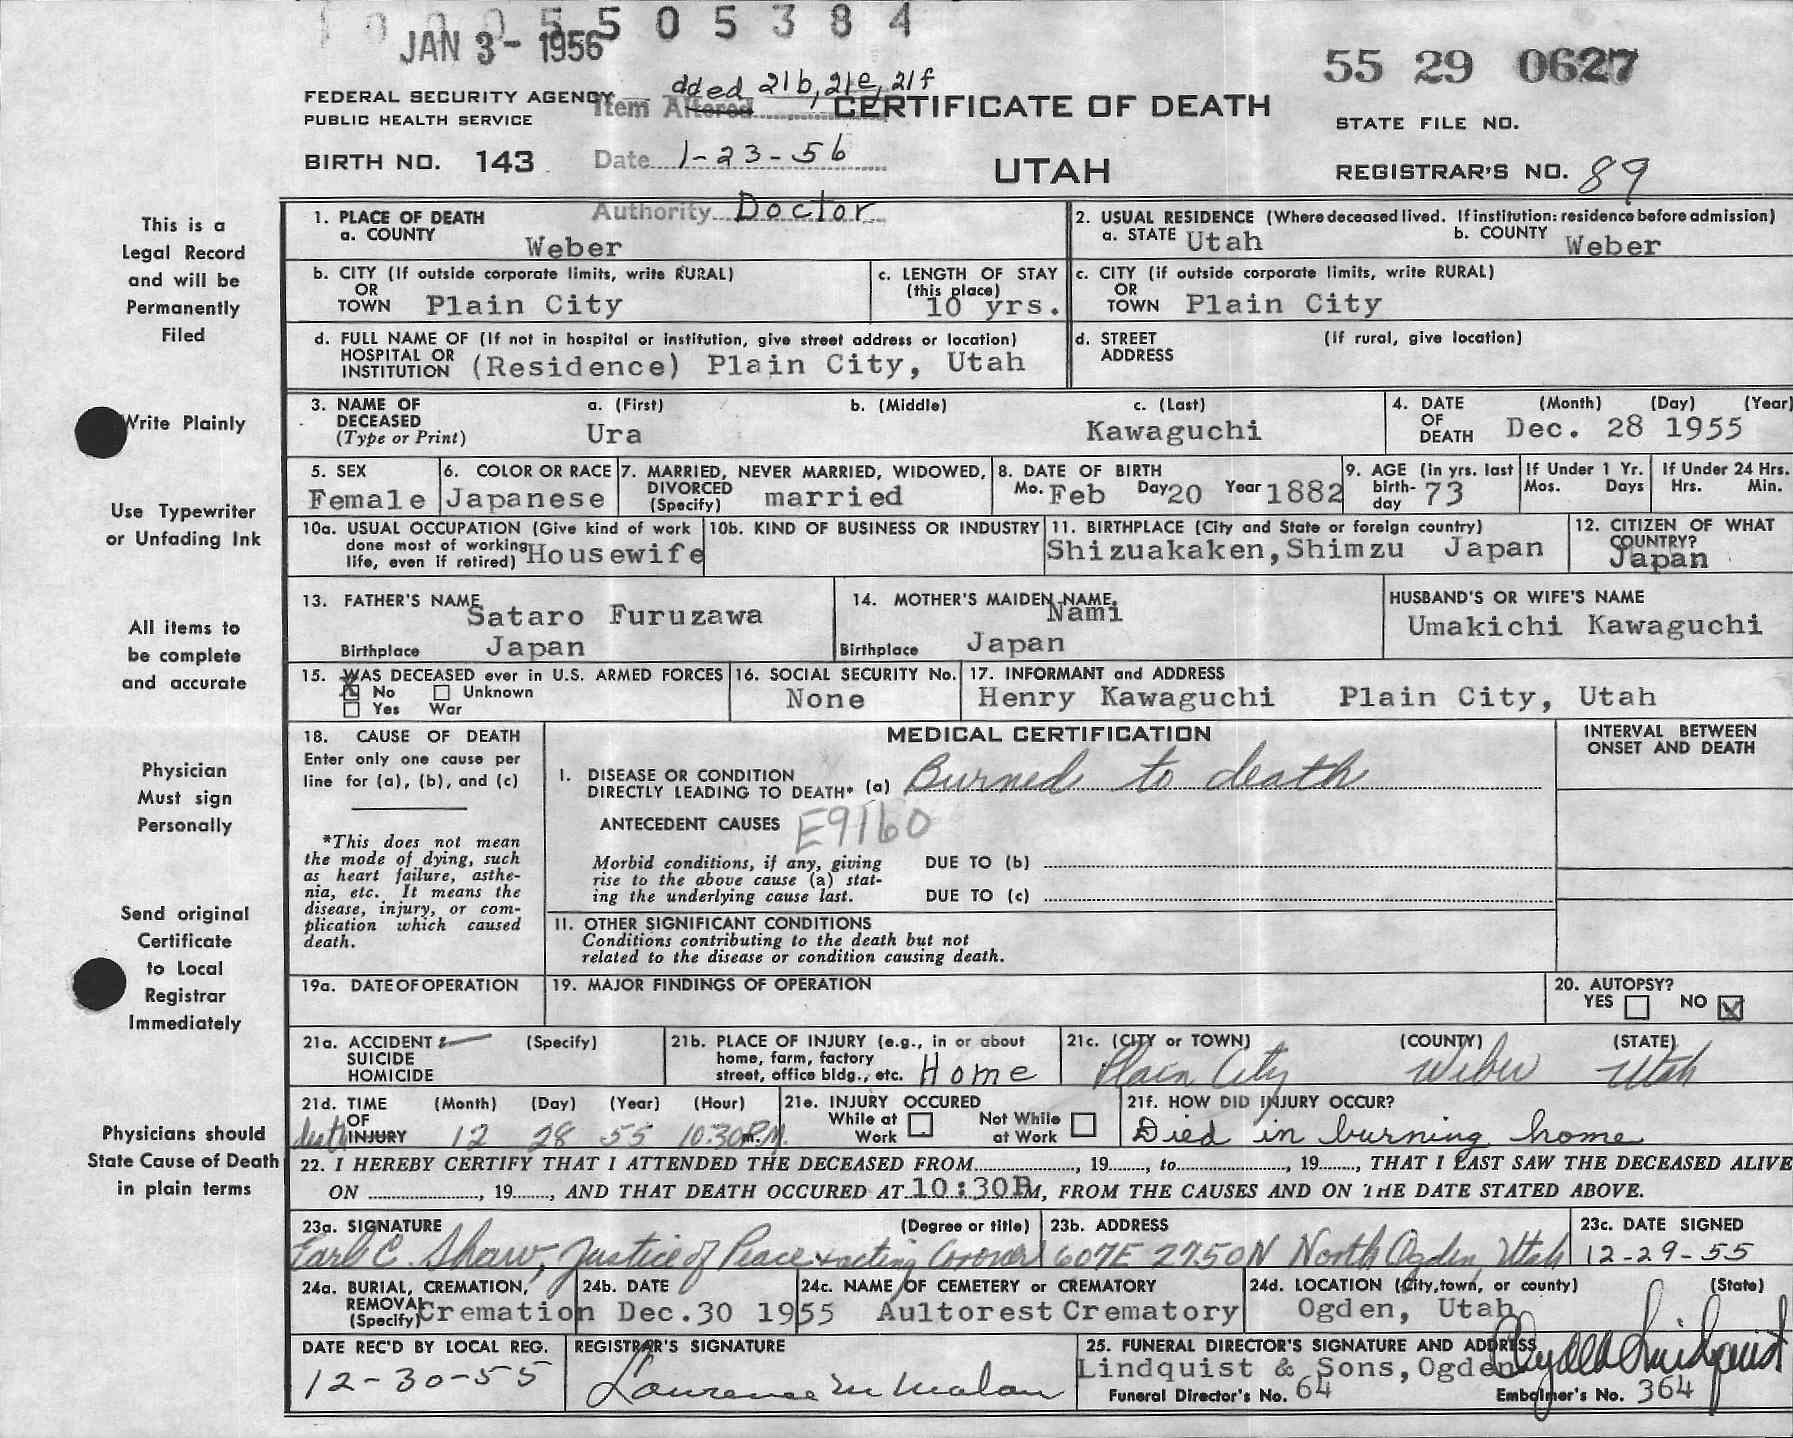 505384
JAN 3 - 1956
55 29 0627
FEDERAL SECURITY AGENCY
PUBLIC HEALTH SERVICE
Item Altered dded 21b, 21e, 21f
CERTIFICATE OF DEATH
STATE FILE NO.
BIRTH NO. 143
Date 1-23-56
UTAH
REGISTRAR'S NO. 89
Authority Doctor
This is a
Legal Record
and will be
Permanently
Filed
Write Plainly
Use Typewriter
or Unfading Ink
All items to
be complete
and accurate
Physician
Must sign
Personally
Send original
Certificate
to Local
Registrar
Immediately
Physicians should
State Cause of Death
in plain terms
1. PLACE OF DEATH
a. COUNTY Weber
2. USUAL RESIDENCE (Where deceased lived. If institution: residence before admission)
a. STATE Utah b. COUNTY Weber
b. CITY (If outside corporate limits, write RURAL)
OR
TOWN Plain City
c. LENGTH OF STAY
(this place)
10 yrs.
c. CITY (if outside corporate limits, write RURAL)
OR
TOWN Plain City
d. FULL NAME OF (If not in hospital or institution, give street address or location)
HOSPITAL OR
INSTITUTION (Residence) Plain City, Utah
d. STREET (If rural, give location)
ADDRESS
3. NAME OF
DECEASED
(Type or Print)
a. (First) b. (Middle) c. (Last)
Ura Kawaguchi
4. DATE (Month) (Day) (Year)
OF
DEATH Dec. 28 1955
5. SEX
Female
6. COLOR OR RACE
Japanese
7. MARRIED, NEVER MARRIED, WIDOWED,
DIVORCED
(Specify) married
8. DATE OF BIRTH
Mo. Feb Day 20 Year 1882
9. AGE (in yrs. last
birth-
day 73
If Under 1 Yr.
Mos. Days
If Under 24 Hrs.
Hrs. Min.
10a. USUAL OCCUPATION (Give kind of work
done most of working
life, even if retired) Housewife
10b. KIND OF BUSINESS OR INDUSTRY
11. BIRTHPLACE (City and State or foreign country)
Shizuakaken, Shimzu Japan
12. CITIZEN OF WHAT
COUNTRY?
Japan
13. FATHER'S NAME
Sataro Furuzawa
Birthplace Japan
14. MOTHER'S MAIDEN NAME
Nami
Birthplace Japan
HUSBAND'S OR WIFE'S NAME
Umakichi Kawaguchi
15. WAS DECEASED ever in U.S. ARMED FORCES
No Unknown
Yes War
16. SOCIAL SECURITY No.
None
17. INFORMANT and ADDRESS
Henry Kawaguchi Plain City, Utah
18. CAUSE OF DEATH
Enter only one cause per
line for (a), (b), and (c)
*This does not mean
the mode of dying, such
as heart failure, asthe-
nia, etc. It means the
disease, injury, or com-
plication which caused
death.
MEDICAL CERTIFICATION
INTERVAL BETWEEN
ONSET AND DEATH
I. DISEASE OR CONDITION
DIRECTLY LEADING TO DEATH* (a) Burned to death
ANTECEDENT CAUSES E9160
Morbid conditions, if any, giving
rise to the above cause (a) stat-
ing the underlying cause last.
DUE TO (b)
DUE TO (c)
II. OTHER SIGNIFICANT CONDITIONS
Conditions contributing to the death but not
related to the disease or condition causing death.
19a. DATE OF OPERATION
19. MAJOR FINDINGS OF OPERATION
20. AUTOPSY?
YES NO
21a. ACCIDENT (Specify)
SUICIDE
HOMICIDE
21b. PLACE OF INJURY (e.g., in or about
home, farm, factory
street, office bldg., etc. Home
21c. (CITY or TOWN) (COUNTY) (STATE)
Plain City Weber Utah
21d. TIME (Month) (Day) (Year) (Hour)
OF
death INJURY 12 28 55 10:30 P.M.
21e. INJURY OCCURED
While at Work
Not While at Work
21f. HOW DID INJURY OCCUR?
Died in burning home
22. I HEREBY CERTIFY THAT I ATTENDED THE DECEASED FROM, 19, to, 19, THAT I LAST SAW THE DECEASED ALIVE
ON, 19, AND THAT DEATH OCCURED AT 10:30P M, FROM THE CAUSES AND ON THE DATE STATED ABOVE.
23a. SIGNATURE (Degree or title)
Earl C. Shaw, Justice of Peace & acting Coroner
23b. ADDRESS
607E 2750N North Ogden, Utah
23c. DATE SIGNED
12-29-55
24a. BURIAL, CREMATION,
REMOVAL
(Specify) Cremation
24b. DATE
Dec. 30 1955
24c. NAME OF CEMETERY OR CREMATORY
Aultorest Crematory
24d. LOCATION (City, town, or county) (State)
Ogden, Utah
DATE REC'D BY LOCAL REG.
12-30-55
REGISTRAR'S SIGNATURE
Laurence M Malan
25. FUNERAL DIRECTOR'S SIGNATURE AND ADDRESS
Lindquist & Sons, Ogden
Funeral Director's No. 64
Embalmer's No. 364